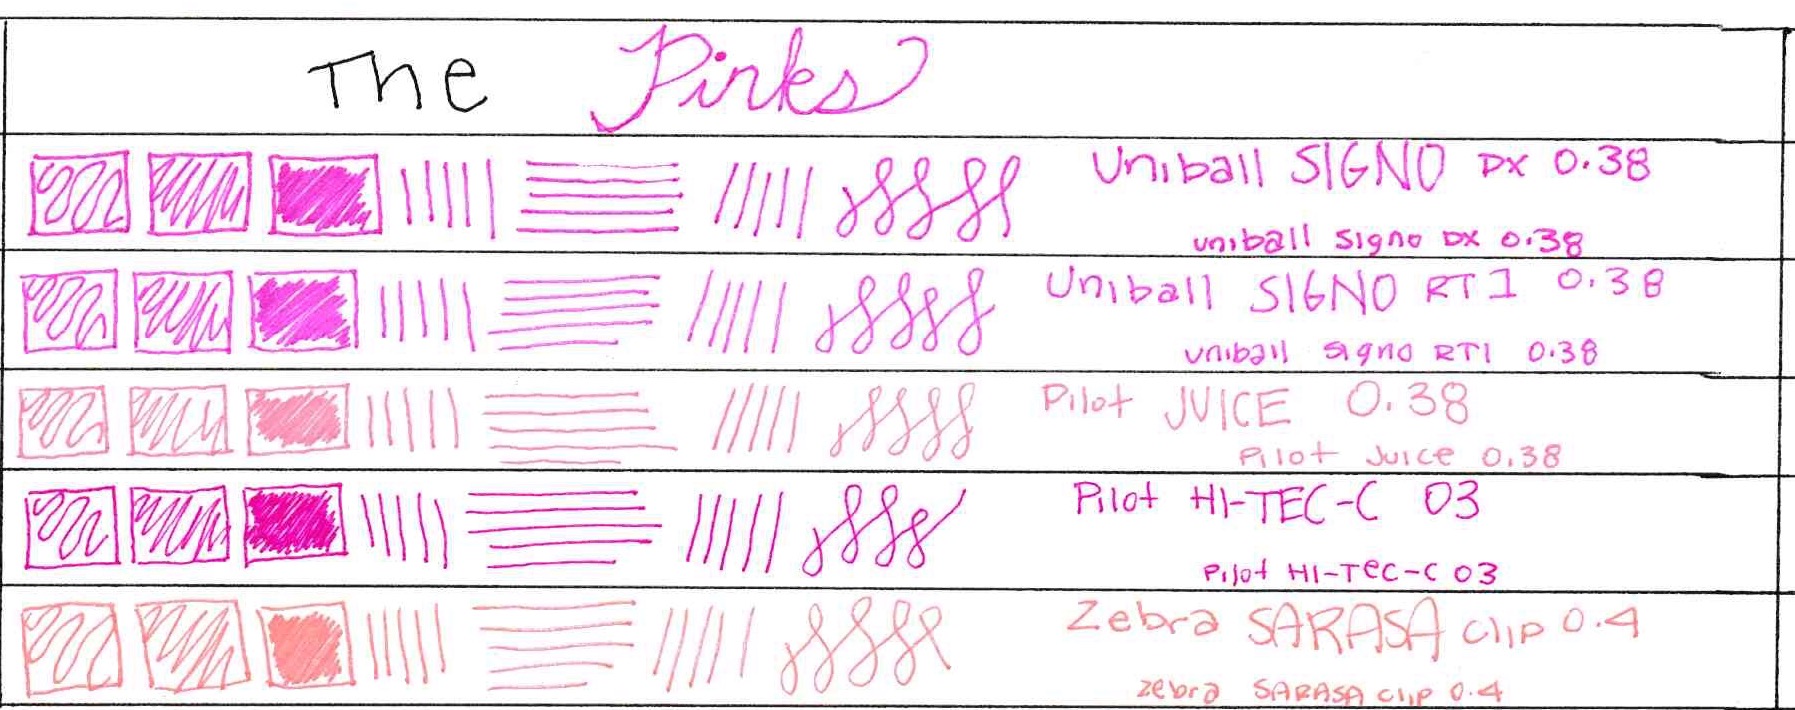 The Pinks
Uniball SIGNO DX 0.38
uniball signo DX 0.38
Uniball SIGNO RT1 0.38
uniball signo RT1 0.38
Pilot JUICE 0.38
Pilot Juice 0.38
Pilot HI-TEC-C 03
Pilot HI-TEC-C 03
Zebra SARASA clip 0.4
zebra SARASA clip 0.4